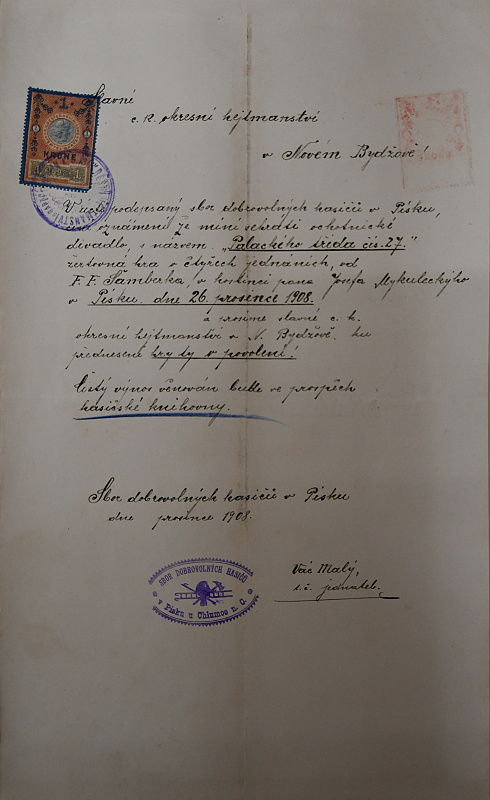 Slavné
c. k. okresní hejtmanství
v Novém Bydžově!
1
KRONE
V úctě podepsaný sbor dobrovolných hasičů v Písku,
činí oznámení že míní sehráti ochotnické
divadlo, s názvem „Palackého třída čís. 27."
žertovná hra o čtyřech jednáních, od
F. F. Šamberka, v hostinci pana Josefa Mykuleckýho
v Písku dne 26. prosence 1908.
a prosíme slavné c. k.
okresní hejtmanství v N. Bydžově ku
přednesené hry ty o povolení!
Čistý výnos věnován bude ve prospěch
hasičské knihovny.
Sbor dobrovolných hasičů v Písku
dne prosince 1908.
SBOR DOBROVOLNÝCH HASIČŮ
v Písku u Chlumce n. C.
Vác Malý,
t. č. jednatel.